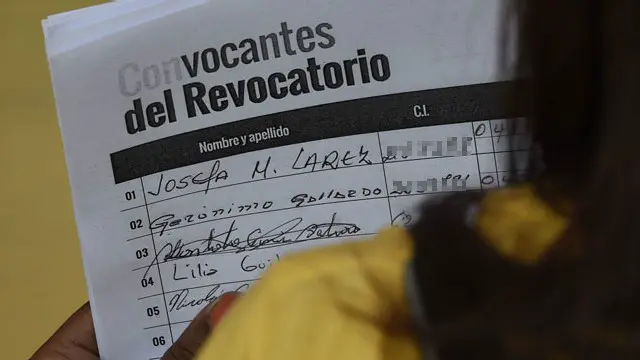 Convocantes
del Revocatorio
Nombre y apellido C.I.
01 JOSEFA M. LAREZ 04
02 GERÓNIMO GALLARDO 0
03
04 Lilia
05
06